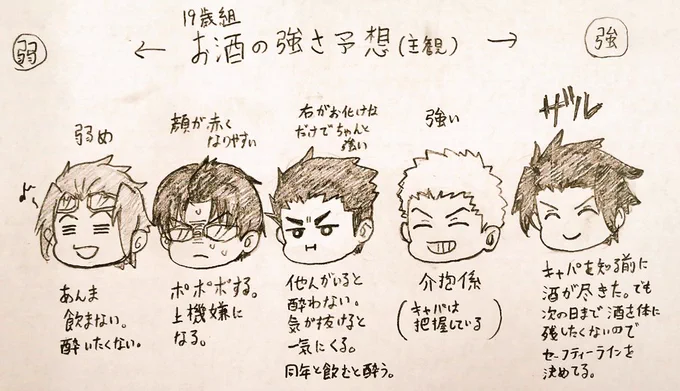 19歳組
弱 ← お酒の強さ予想(主観) → 強
弱め
顔が赤く
なりやすい
右がお化けな
だけでちゃんと
強い
強い
ザル
あんま
飲まない。
酔いたくない。
ポポポする。
上機嫌に
なる。
他人がいると
酔わない。
気が抜けると
一気にくる。
同年と飲むと酔う。
介抱係
(キャパは
把握している)
キャパを知る前に
酒が尽きた。でも
次の日まで酒を体に
残したくないので
セーフティーラインを
決めてる。